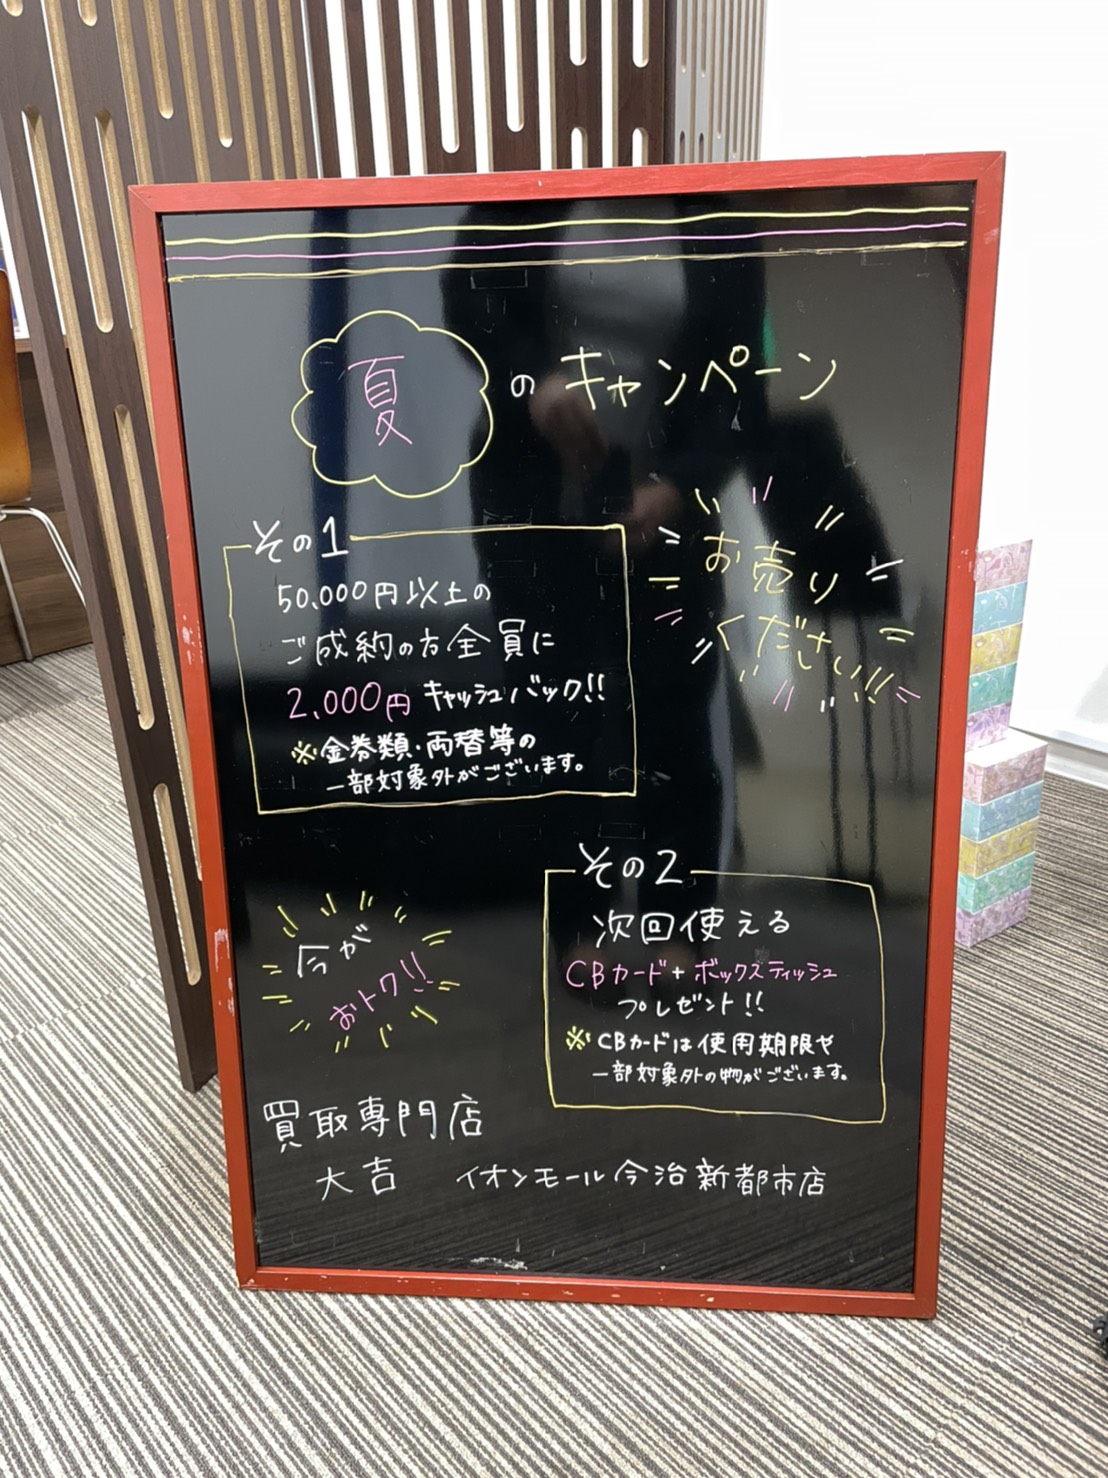 夏のキャンペーン
その1
50,000円以上の
ご成約の方全員に
2,000円キャッシュバック!!
※金券類・両替等の
一部対象外がございます。
お売り
ください!!
その2
次回使える
CBカード+ボックスティッシュ
プレゼント!!
※CBカードは使用期限や
一部対象外の物がございます。
今が
おトク!!
買取専門店
大吉 イオンモール今治新都市店